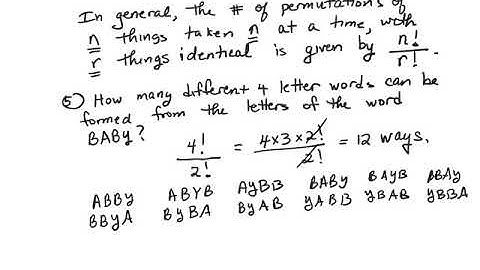 In general, the # of permutations of
n things taken n at a time, with
r things identical is given by n!/r!.
⑤ How many different 4 letter words can be
formed from the letters of the word
BABY?
4!/2! = 4×3×2!/2! = 12 ways.
ABBY ABYB AYBB BABY BAYB BBAY
BBYA BYBA BYAB YABB YBAB YBBA